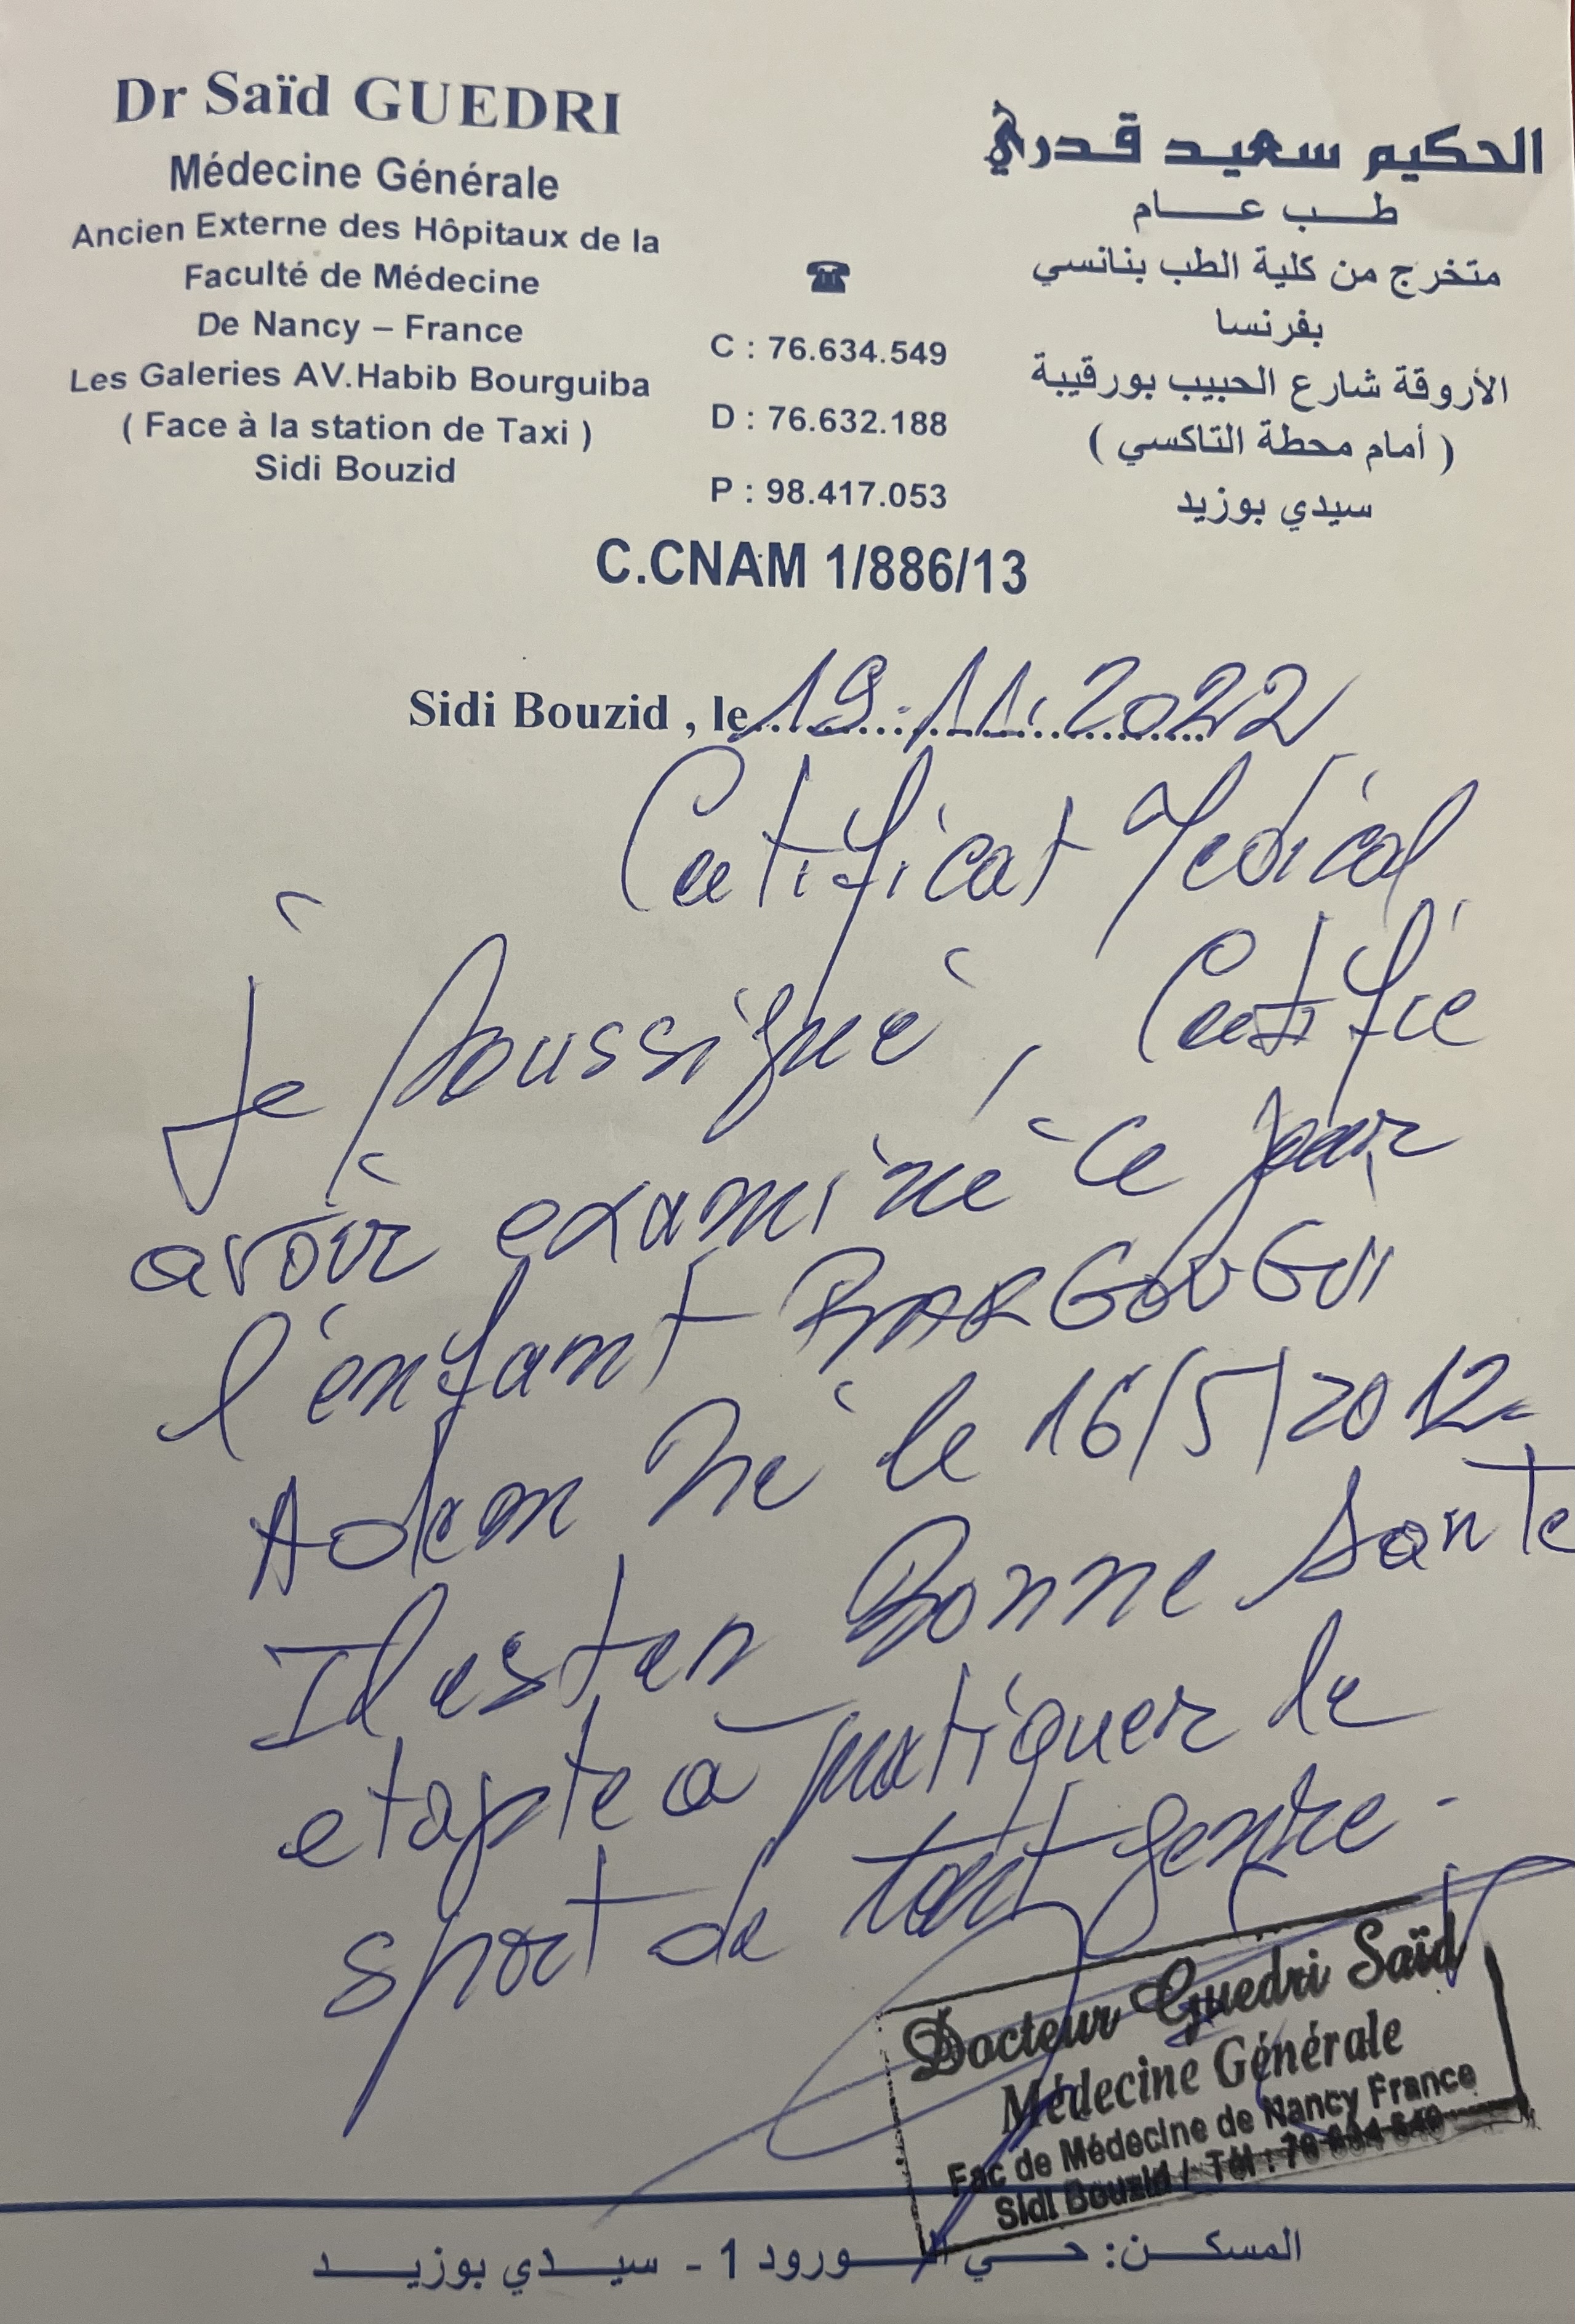 Dr Saïd GUEDRI
Médecine Générale
Ancien Externe des Hôpitaux de la
Faculté de Médecine
De Nancy – France
Les Galeries AV.Habib Bourguiba
( Face à la station de Taxi )
Sidi Bouzid
☎
C : 76.634.549
D : 76.632.188
P : 98.417.053
الحكيم سعيد قدري
طب عام
متخرج من كلية الطب بنانسي
بفرنسا
الأروقة شارع الحبيب بورقيبة
( أمام محطة التاكسي )
سيدي بوزيد
C.CNAM 1/886/13
Sidi Bouzid , le 19.11.2022
Certificat Medical
Je soussigné, Certifie
avoir examiné ce jour
l'enfant BARGOUGUI
Adem né le 16/5/2012
Il est en Bonne Santé
et apte à pratiquer le
sport de tout genre.
Docteur Guedri Saïd
Médecine Générale
Fac de Médecine de Nancy France
Sidi Bouzid / Tél : 76 634 549
المسكن: حي الورود 1 - سيدي بوزيد